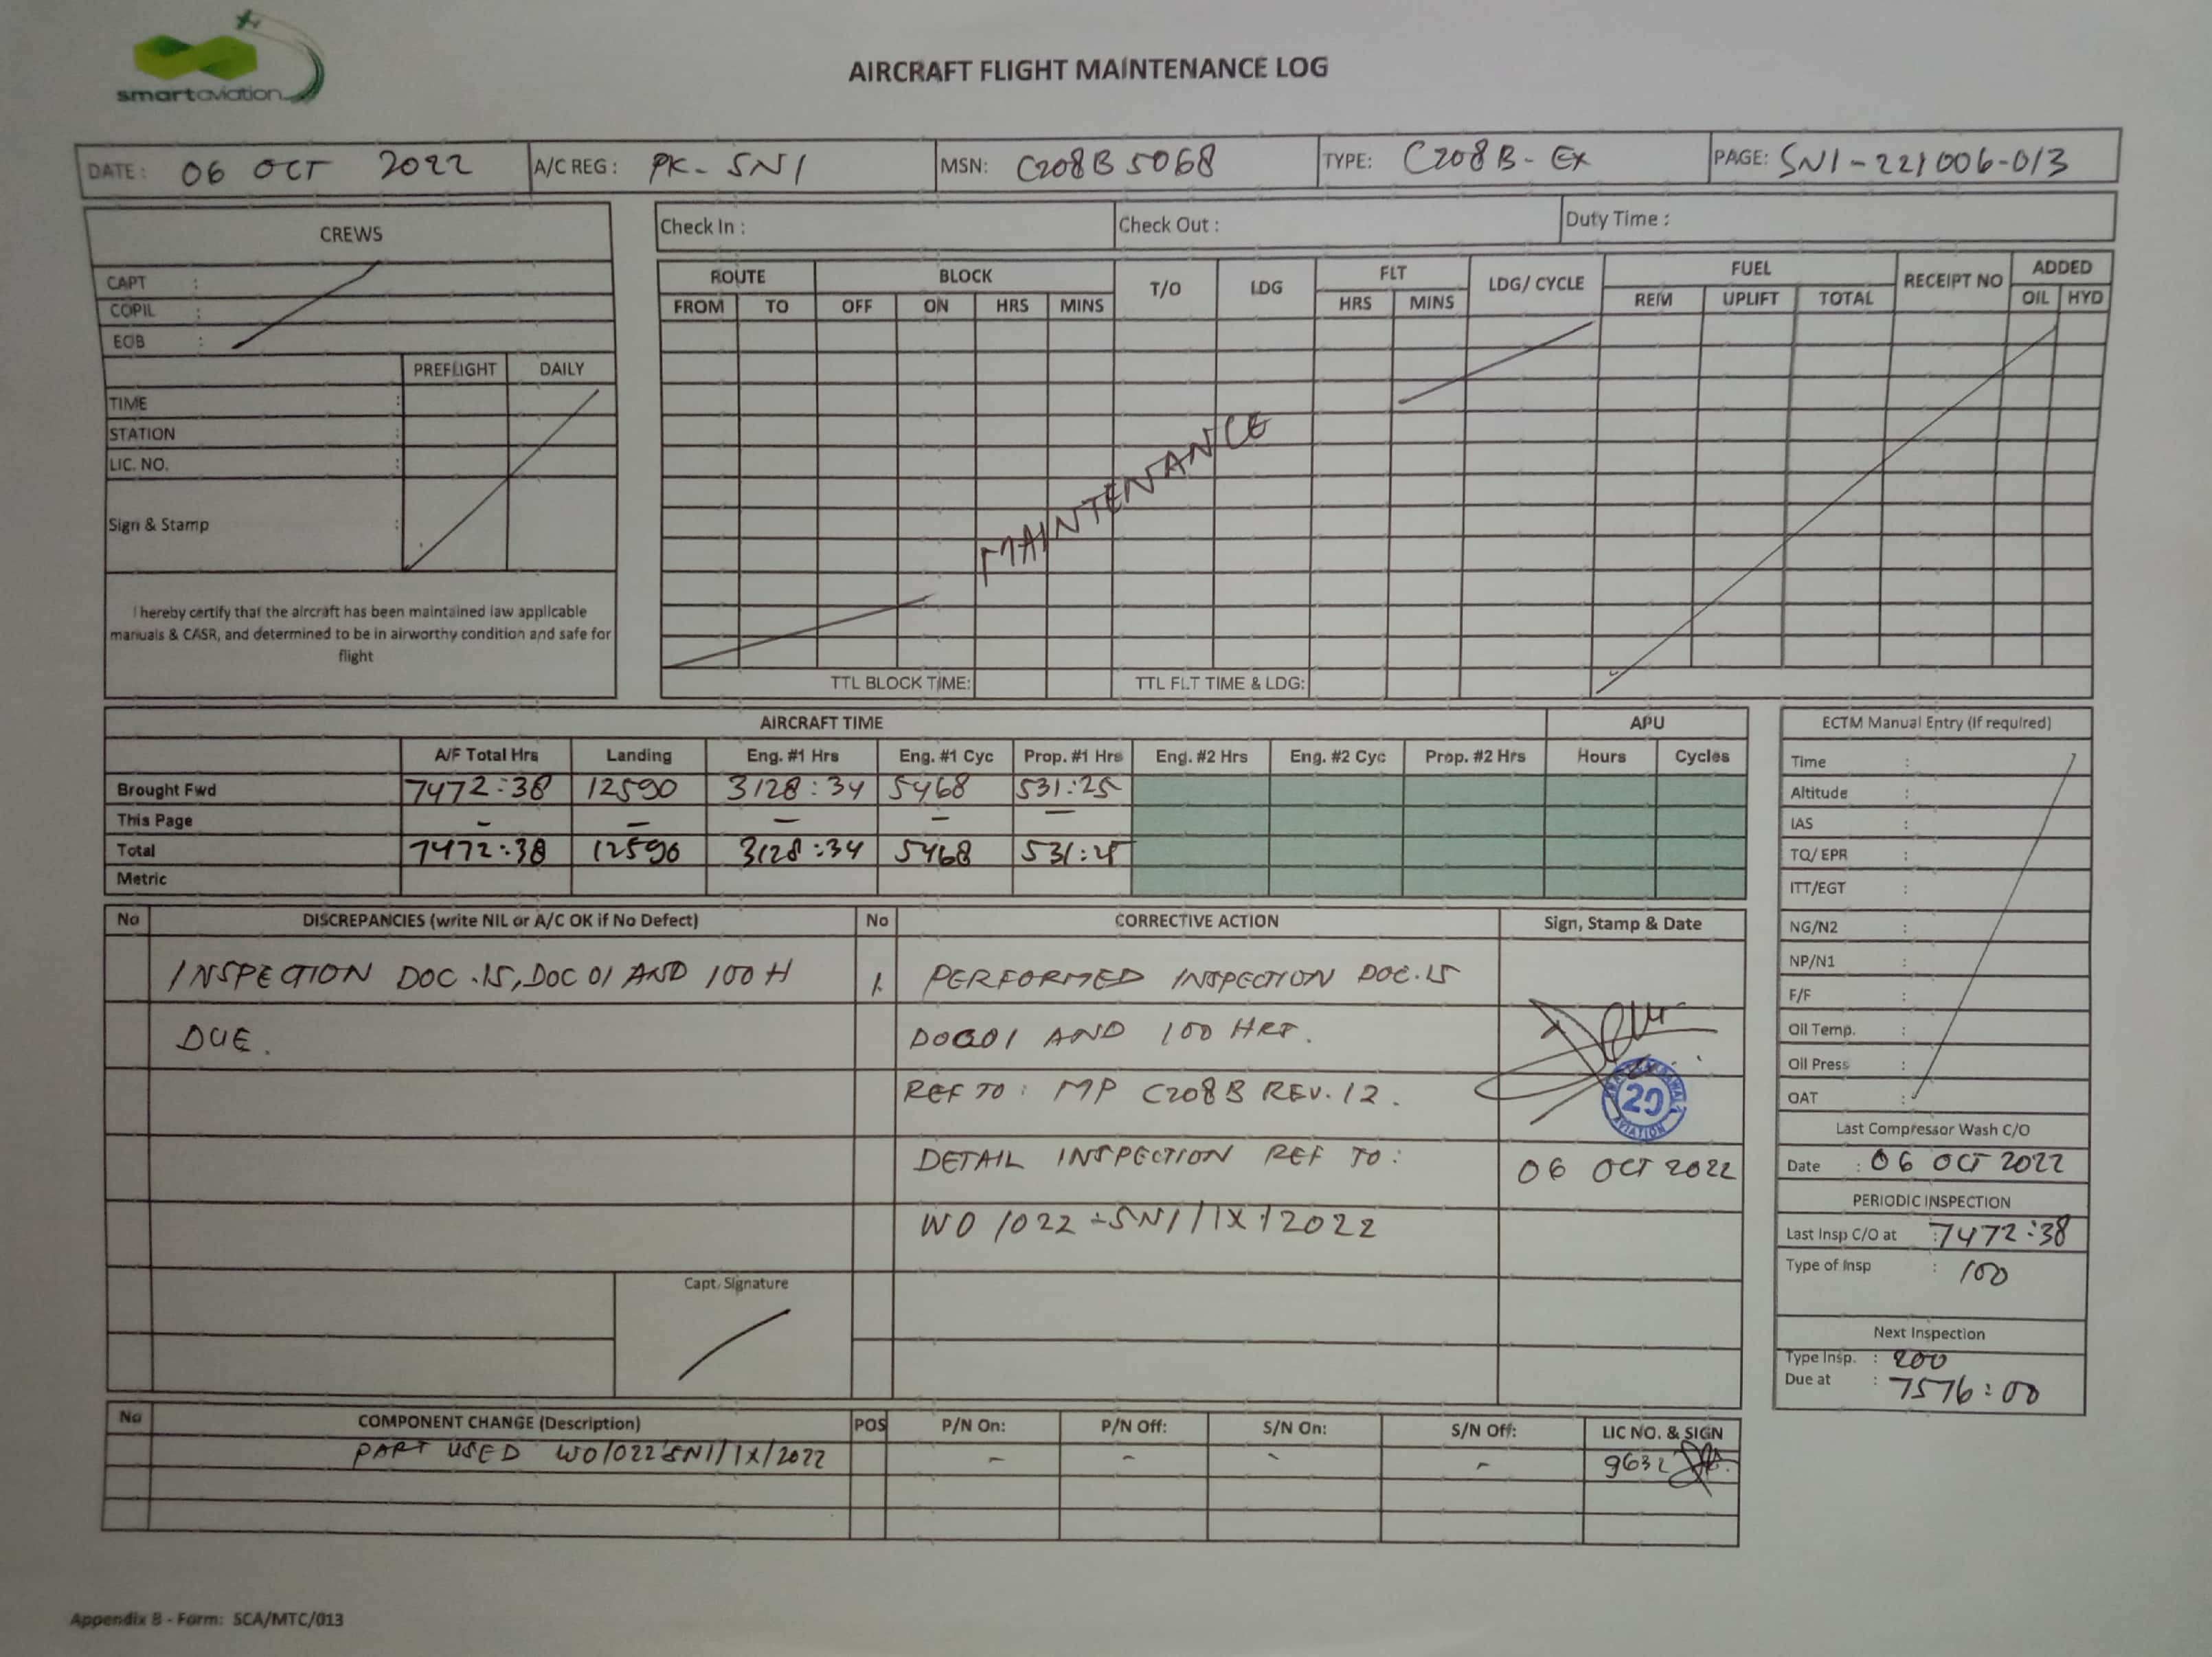 smartaviation
AIRCRAFT FLIGHT MAINTENANCE LOG
DATE : 06 OCT 2022 A/C REG : PK-SNI MSN: C208B5068 TYPE: C208B-EX PAGE: SNI-221006-013
CREWS
CAPT :
COPIL :
EOB :
PREFLIGHT DAILY
TIME :
STATION :
LIC. NO. :
Sign & Stamp :
I hereby certify that the aircraft has been maintained law applicable
manuals & CASR, and determined to be in airworthy condition and safe for
flight
Check In : Check Out : Duty Time :
ROUTE BLOCK T/O LDG FLT LDG/ CYCLE FUEL RECEIPT NO ADDED
FROM TO OFF ON HRS MINS HRS MINS REM UPLIFT TOTAL OIL HYD
MAINTENANCE
TTL BLOCK TIME: TTL FLT TIME & LDG:
AIRCRAFT TIME APU
A/F Total Hrs Landing Eng. #1 Hrs Eng. #1 Cyc Prop. #1 Hrs Eng. #2 Hrs Eng. #2 Cyc Prop. #2 Hrs Hours Cycles
Brought Fwd 7472:38 12590 3128:34 5468 531:25
This Page - - - - -
Total 7472:38 12590 3128:34 5468 531:25
Metric
ECTM Manual Entry (If required)
Time :
Altitude :
IAS :
TQ/ EPR :
ITT/EGT :
NG/N2 :
NP/N1 :
F/F :
Oil Temp. :
Oil Press :
OAT :
Last Compressor Wash C/O
Date : 06 OCT 2022
PERIODIC INSPECTION
Last Insp C/O at : 7472:38
Type of Insp : 100
Next Inspection
Type Insp. : 200
Due at : 7576:00
No DISCREPANCIES (write NIL or A/C OK if No Defect) No CORRECTIVE ACTION Sign, Stamp & Date
INSPECTION DOC.15, DOC 01 AND 100 H 1. PERFORMED INSPECTION DOC.15
DUE. DOC01 AND 100 HRS.
REF TO : MP C208B REV.12.
29
AVIATION
DETAIL INSPECTION REF TO : 06 OCT 2022
WO/022-SNI/IX/2022
Capt. Signature
No COMPONENT CHANGE (Description) POS P/N On: P/N Off: S/N On: S/N Off: LIC NO. & SIGN
PART USED WO/022-SNI/IX/2022 - - - - 9632
Appendix B - Form: SCA/MTC/013